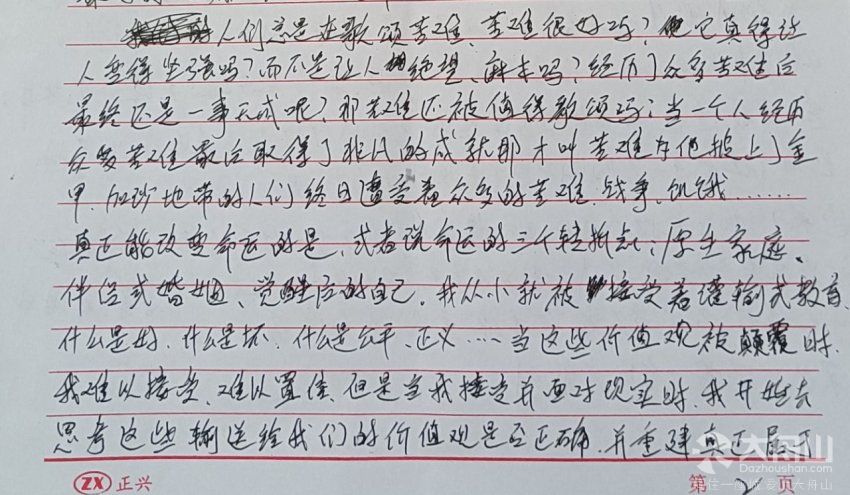 人们总是在歌颂苦难、苦难很好吗？它真得让
人变得坚强吗？而不是让人绝望、麻木吗？经历了众多苦难后
最终还是一事无成呢？那苦难还被值得歌颂吗；当一个人经历
众多苦难最后取得了非凡的成就那才叫苦难为他披上了金
甲．加沙地带的人们终日遭受着众多的苦难．战争．饥饿……
真正能改变命运的是，或者说命运的三个转折点：原生家庭、
伴侣或婚姻、觉醒后的自己．我从小就被接受着灌输式教育、
什么是好．什么是坏．什么是公平、正义……当这些价值观被颠覆时．
我难以接受、难以置信．但是当我接受并面对现实时．我开始去
思考这些输送给我们的价值观是否正确．并重建真正属于
ZX 正兴
第 2 页
大舟山
Dazhoushan.com
住一座城 爱大舟山